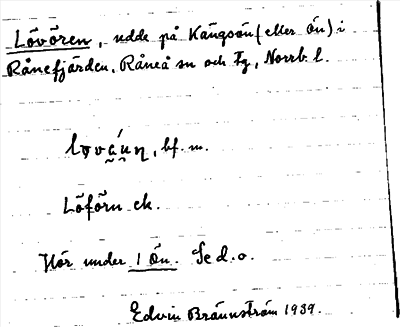 Lövören, udde på Kängsön (eller Ön) i
Rånefjärden, Råneå sn och Fg, Norrb. l.
bf. m.
Löförn ek.
Hör under 1 Ön. Se d. o.
Edvin Brännström 1939.